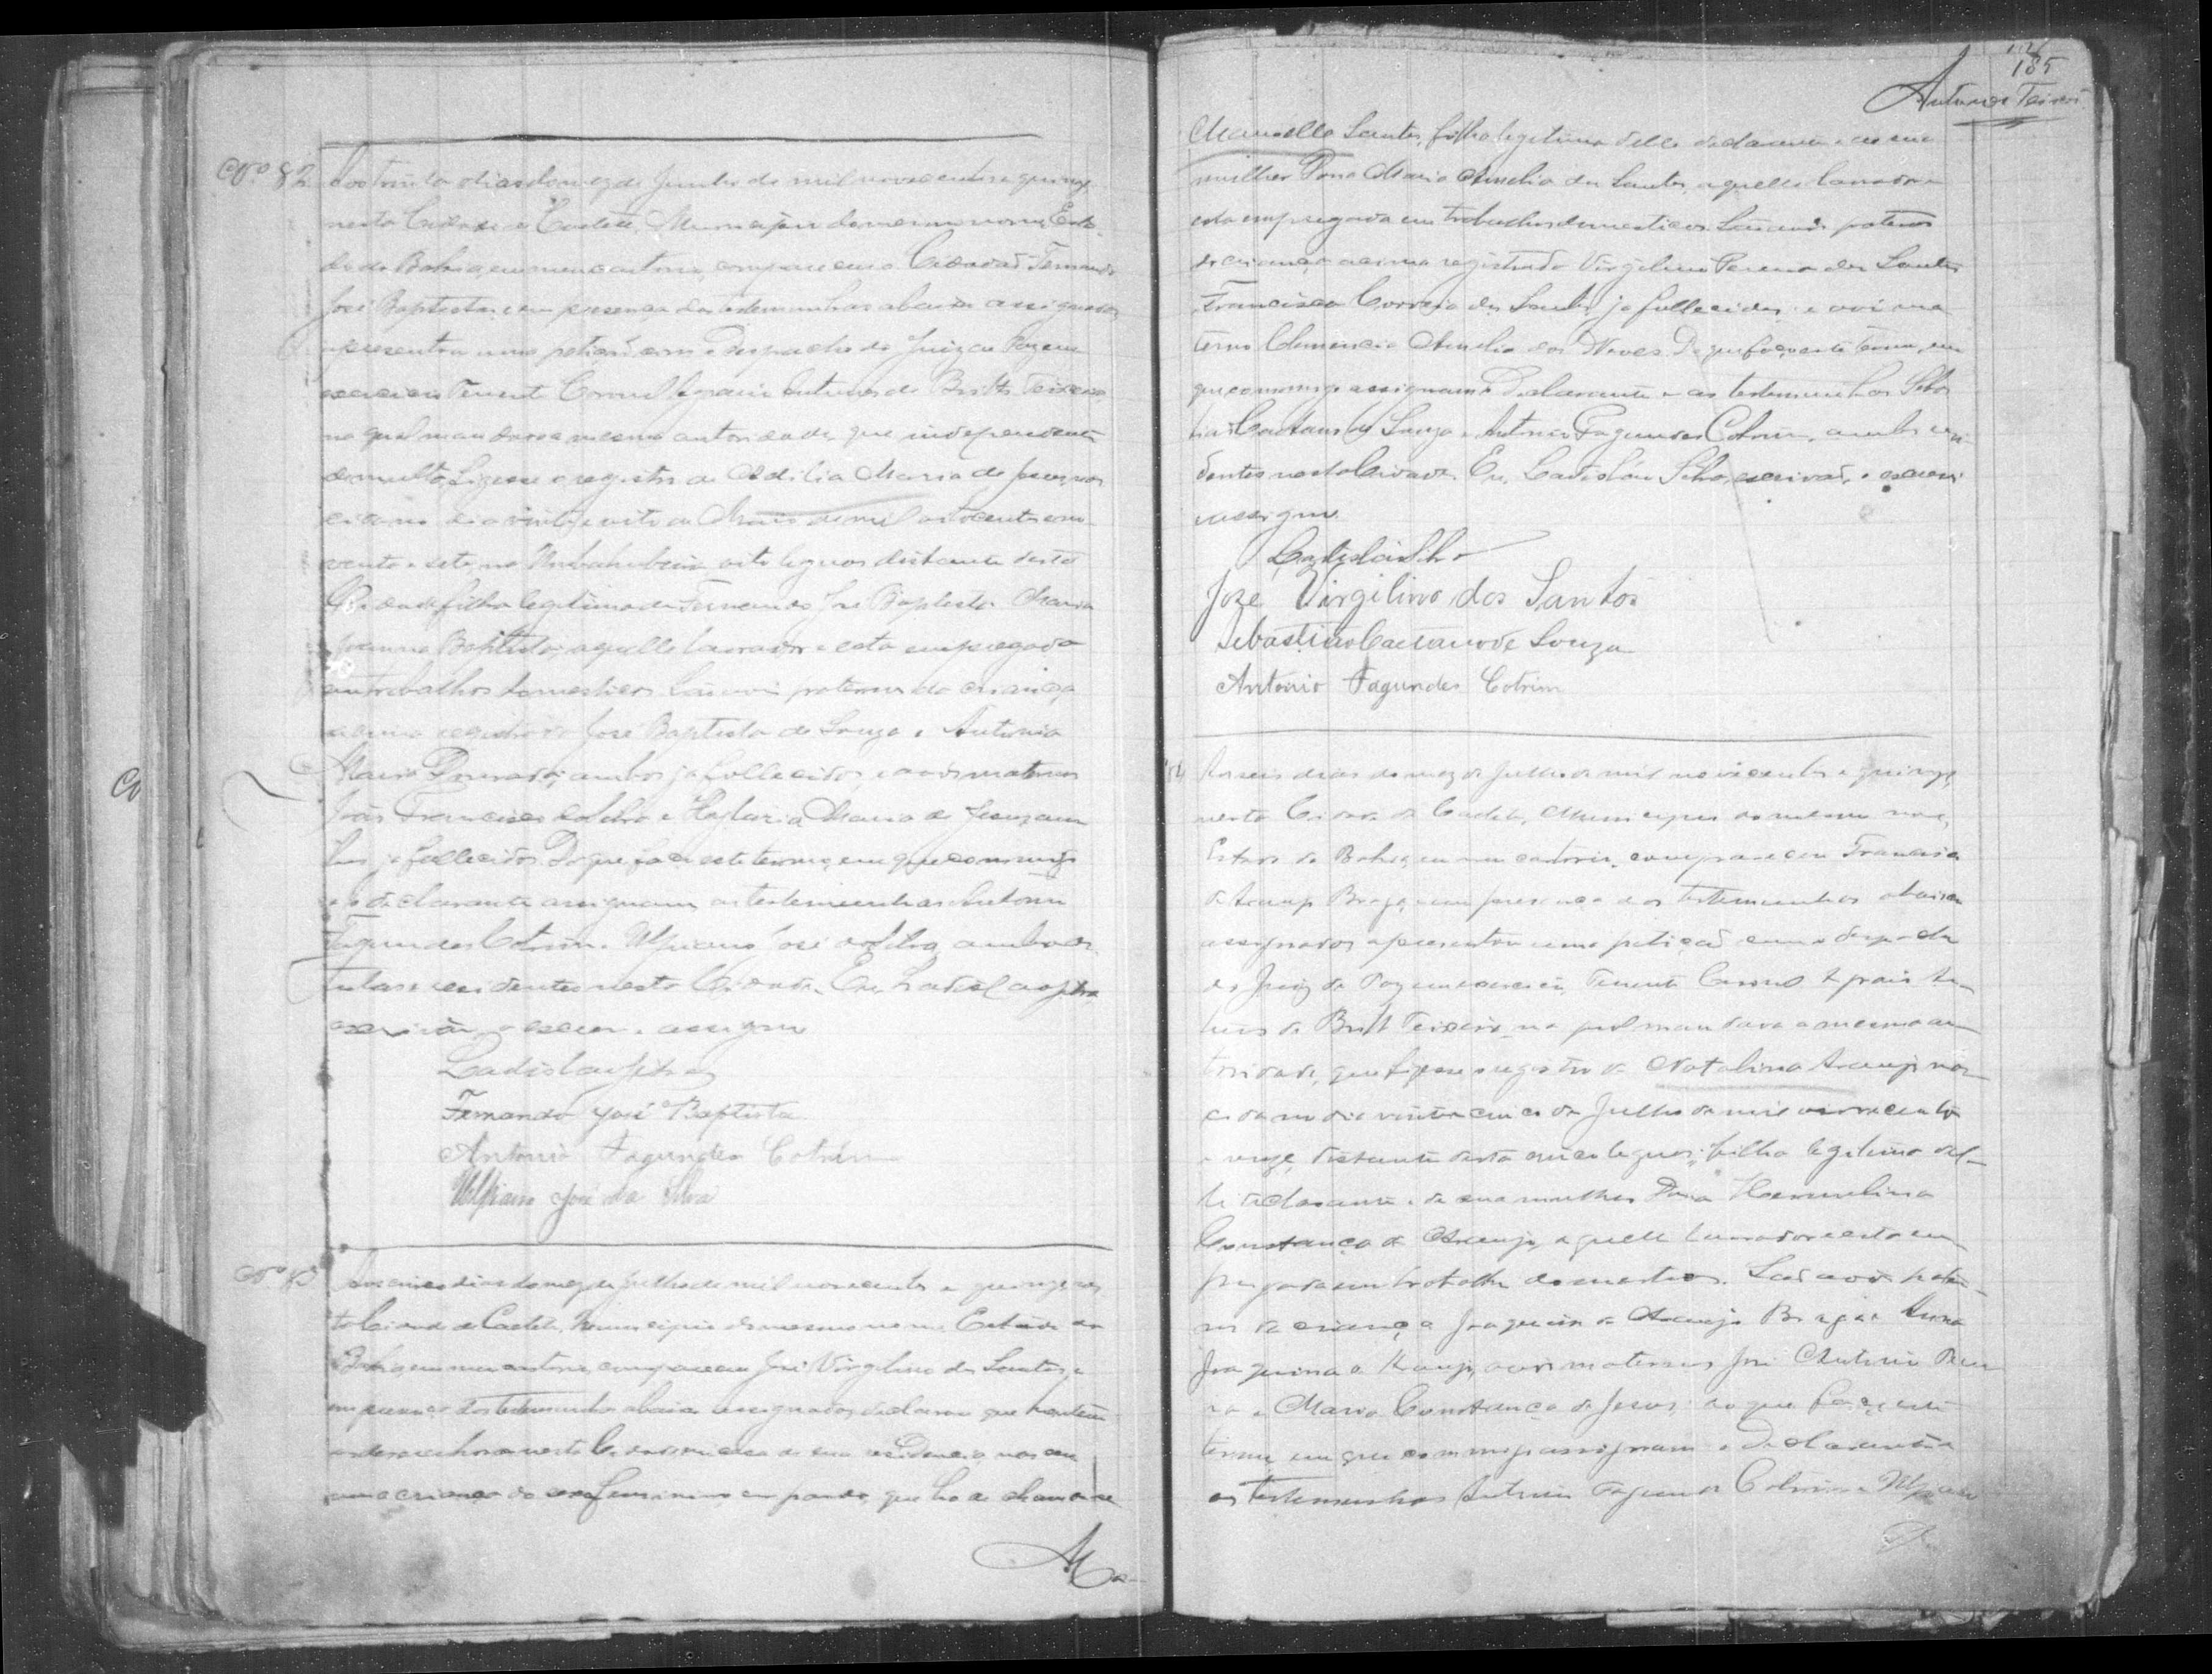 Nº 82 Aos trinta dias do mez de Junho de mil novecentos e quinze
nesta Cidade de Caeteté, Municipio do mesmo nome, Esta-
do da Bahia, em meu cartorio, compareceu o Cidadão Fernando
José Baptista, e em presença das testemunhas abaixo assignadas,
apresentou uma petição com o despacho do Juiz de Paz em
exercicio Tenente Coronel Antunes de Britto Teixeira
na qual mandava a mesma autoridade, que independente
de multa, fizesse o registro de Adilia Maria de Jesus, nas-
cida no dia vinte e oito de Maio de mil oitocentos e no-
venta e sete, na oito leguas distante desta
Cidade, filha legitima de Fernando José Baptista Maria
Joanna Baptista, aquelle lavrador e esta empregada
em trabalhos domesticos. São avós paternos da criança
acima registrada José Baptista de Souza e Antonia
Maria ambos já fallecidos, e avós maternos
João Francisco da Silva e Maria de Jesus, am-
bos já fallecidos. Do que faço este termo, em que commigo
e o declarante assignam as testemunhas Antonio
Fagundes Cotrim e Ulpiano José da Silva, ambos
residentes nesta Cidade. Eu, Ladislau Silva,
escrivão, o escrevi e assigno
Ladislau Silva
Fernando José Baptista
Antonio Fagundes Cotrim
Ulpiano José da Silva
Nº 83 Aos cinco dias do mez de Julho de mil novecentos e quinze, nes-
ta Cidade de Caeteté, Municipio do mesmo nome, Estado da
Bahia, em meu cartorio, compareceu José Virgilino dos Santos, e
em presença das testemunhas abaixo assignadas, declarou que hontem
horas nesta Cidade, em casa de sua residencia, nasceu
uma criança do sexo feminino, cor parda, que ha de chamar-se
Ma-
185
Antunes Teixeira
Santos, filha legitima delle declarante e de sua
mulher Dona Maria Amelia dos Santos, aquelle lavrador e
esta empregada em trabalhos domesticos. São avós paternos
da criança acima registrada Virgilino Pereira dos Santos
Francisca Correia dos Santos, já fallecidos; e avó ma-
terna Clemencia Amelia das Neves. Do que faço este termo, em
que commigo assignam o Declarante e as testemunhas Sebas-
tião Caetano de Souza e Antonio Fagundes Cotrim, ambos resi-
dentes nesta Cidade. Eu, Ladislau Silva, escrivão, o escrevi
e assigno.
Ladislau Silva
Joze Virgilino dos Santos
Sebastião Caetano de Souza
Antonio Fagundes Cotrim
Aos seis dias do mez de Julho de mil novecentos e quinze,
nesta Cidade de Caeteté, Municipio do mesmo nome,
Estado da Bahia, em meu cartorio, compareceu Francisco
de Araujo Braga, e em presença das testemunhas abaixo
assignadas apresentou uma petição com o despacho
do Juiz de Paz em exercicio, Tenente Coronel An-
tunes de Britto Teixeira, na qual mandava a mesma au-
toridade, que fizesse o registro de Natalina Araujo, nas-
cida no dia vinte e cinco de Julho de mil novecentos
e onze, distante desta cinco leguas, filha legitima del-
le declarante e de sua mulher Dona Hermelina
Constança de Araujo, aquelle lavrador e esta em-
pregada em trabalho domestico. São avós pater-
nos da criança Joaquim de Araujo Braga e Anna
Joaquina de Araujo, avós maternos José Antonio Perei-
ra e Maria Constança de Jesus; do que faço este
termo em que commigo assignam o Declarante e
as testemunhas Antonio Fagundes Cotrim e Ulpiano